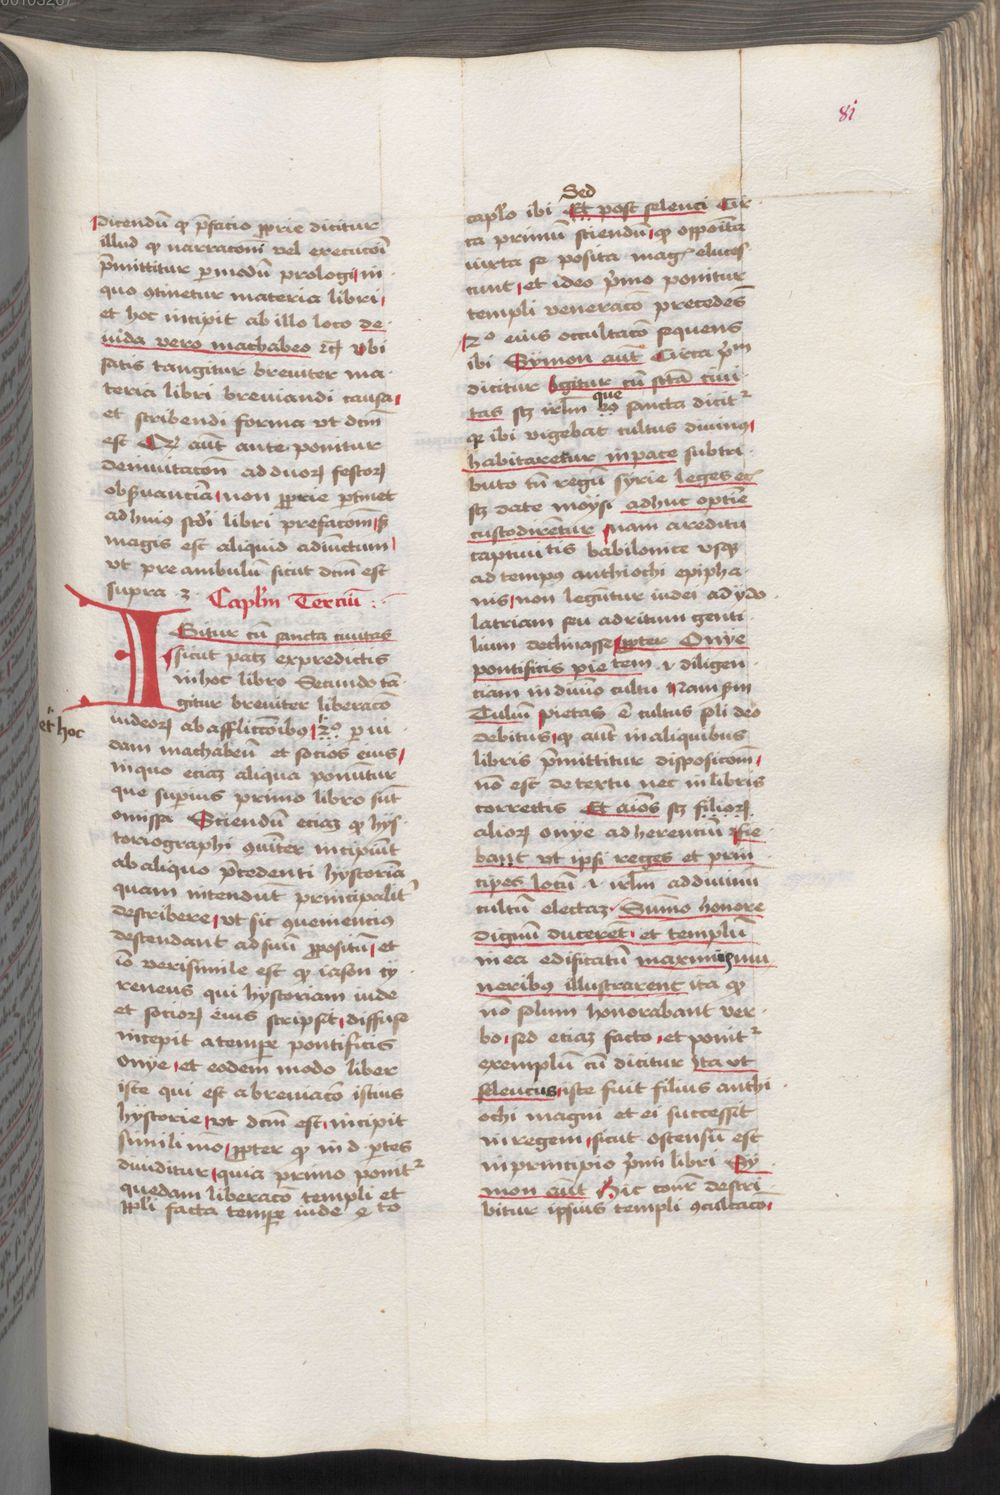 81
Dicendū qͥ p̄facio ꝓprie dicitur
illud qͥ narraconi vel execucoī
p̄mittitur p modū prologi in
quo ꝯtinetur materia libri
et hoc incipit ab illo loco de
iuda vero machabeo ꝛcͣ vbi
satis tangitur breuiter ma
teria libri breuiandi causa
et scribendi forma vt dcm̄
est Qͥ aūt ante ponitur
de inuitacon ad duoꝝ festoꝝ
obẜuanciā non ꝓprie ptinet
ad huiꝰ scd̓i libri prefacom̄ sꝫ
magis est aliquid adiūctum
vt pre ambulū sicut dcm̄ est
supra 3 Caplm̄ Terciū
Igitur cū sancta ciuitas
sicut patꝫ ex predictis
in hoc libro Secundo tā
gitur breuiter liberacō
et hoc
iudeoꝝ ab afflictōibꝰ 2º p iu
dam machabeū et socios eius
in quo eciaꝫ aliqua ponūtur
que supius primo libro sūt
omissa Sciendū eciaꝫ qͥ hys
toriographi ꝯuīter incipiūt
ab aliquo p̄cedenti hystoriā
quam intendūt principalit᷑
describere vt sic ꝯueniencius
descendant ad suū ꝓpositū et
iō verisimile est qͥ iason cy
reneus qui hystoriam iude
et socioꝝ eius scripsit diffuse
incepit a tempe pontificis
onye et eodem modo liber
iste qui est abreuiacō istius
hystorie vt dcm̄ est incipit
simili mō ꝓpter qͥ in d ptes
diuiditur quia primo ponit᷑
quedam liberacō templi et
ppli facta tempe iude 2 to
Sed
caplo ibi Et post seleuci Cir
ca primū sciendū qͥ opposita
iuxta se posita mag᷑ eluces
cunt et ideo p̄mo ponitur
templi veneracō precedēs
2º eius occultacō sequens
ibi Symon aūt Circa p̄m
dicitur Igitur cū sctā ciui
que
tas scꝫ irlm̄ ko sancta dicit᷑
qꝛ ibi vigebat cultus diuinus
habitaretur in pace sub tri
buto tn̄ regū syrie leges ec̄
scꝫ date moysi adhuc optīe
custodirentur nam a reditu
captiuitatis babilonice vsqꝫ
ad tempꝰ anthiochi epipha
nis non legūtur iudei ad ydo
latriam seu ad ritum genti
lium declinasse ꝓpter Onye
pontificis pietatem ⁊ diligen
ciam in diuīo cultu Nam ẜm
Tuliū pietas ē cultus soli deo
debitus qͥ aūt in aliquibus
libris p̄mittitur disposicom̄
nō est de textu nec in libris
correctis Et aīos scꝫ filioꝝ
alioꝝ onye adherenciū ꝯfie
bant vt ipsi reges et prin
cipes locū ⁊ irlm̄ ad diuinū
cultū electaꝫ Sūmo honore
dignū ducerēt et templū
in ea edificatū maximis mu
neribꝰ illustrarent ita qͥ
nō solum honorabant ver
bo sed eciaꝫ facto et ponit᷑
exemplū cū dicitur Ita vt
seleucus iste fuit filius anthi
ochi magni et ei successit
in regem sicut ostensū est
in principio p̄mi libri Sy
mon aūt Hic cōnr̄ descri
bitur ipsius templi ꝯcultacō